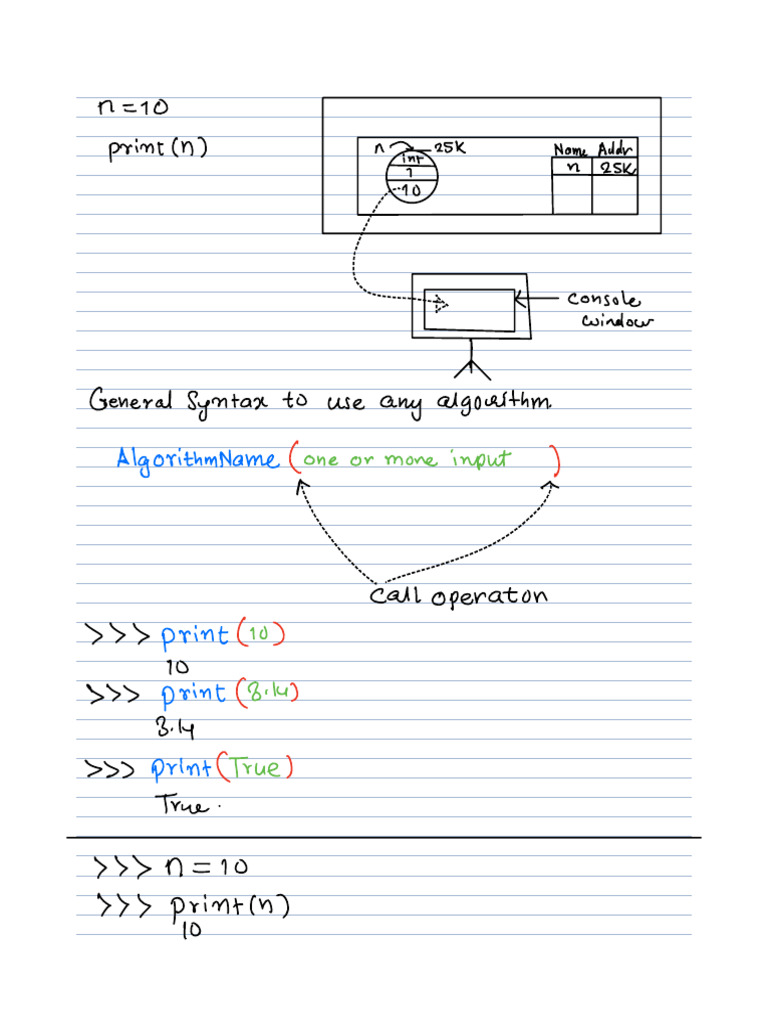 n = 10
print(n)
n 25K
int
1
10
Name Addr
n 25K
console
window
General Syntax to use any algorithm.
AlgorithmName (one or more input )
call operator
>>> print(10)
10
>>> print(3.14)
3.14
>>> print(True)
True.
>>> n = 10
>>> print(n)
10